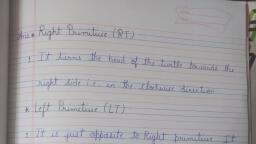 Ans * Right Primitive (RT)
1. It turns the head of the turtle towards the
right side i.e. in the clockwise direction
* Left Primitive (LT)
2. It is just opposite to Right primitive. It